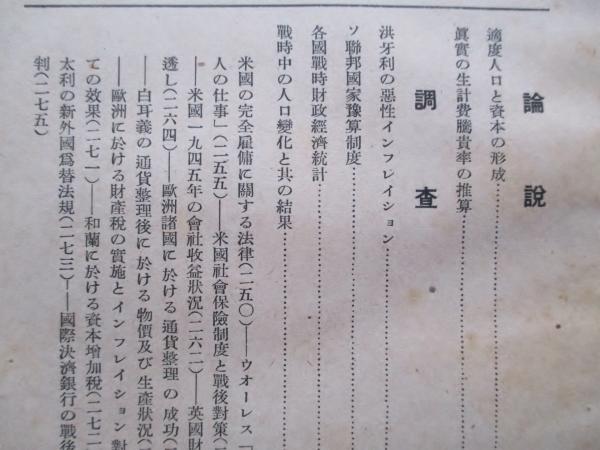 論說
適度人口と資本の形成
眞實の生計費騰貴率の推算
調査
洪牙利の惡性インフレイション
ソ聯邦國家豫算制度
各國戰時財政經濟統計
戰時中の人口變化と其の結果
米國の完全雇傭に關する法律(二五〇)――ウオーレス「
人の仕事」(二五五)――米國社會保險制度と戰後對策(
――米國一九四五年の會社收益狀況(二六二)――英國財
透し(二六四)――歐洲諸國に於ける通貨整理の成功(
――白耳義の通貨整理後に於ける物價及び生產狀況(
――歐洲に於ける財產稅の實施とインフレイション對
ての效果(二七一)――和蘭に於ける資本增加稅(二七二
太利の新外國爲替法規(二七三)――國際決濟銀行の戰後
判(二七五)